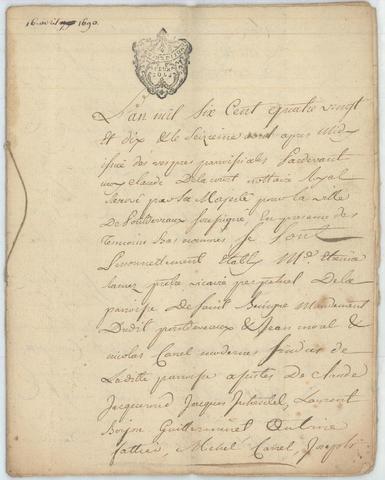 16 avril 1690
L'an mil Six Cent quatre vingt
et dix & le Seizieme avril apres midy
issue des vespres parroissiales Pardevant
moy claude Delacourt nottaire Royal
par Sa Majesté pour la ville
De Pontdevaux soussigné, En presence des
temoins bas nommes se Sont
personnellement Etablis Me Etienne
pretre vicaire perpetuel De la
paroisse De saint Benigne Mandement
Dudit pontdevaux & Jean moral &
nicolas Canel modernes sindics de
Laditte parroisse assistes De claude
Jacquemid Jacques Laurent
Guilleminet Antoine
Michel Canel, Joseph